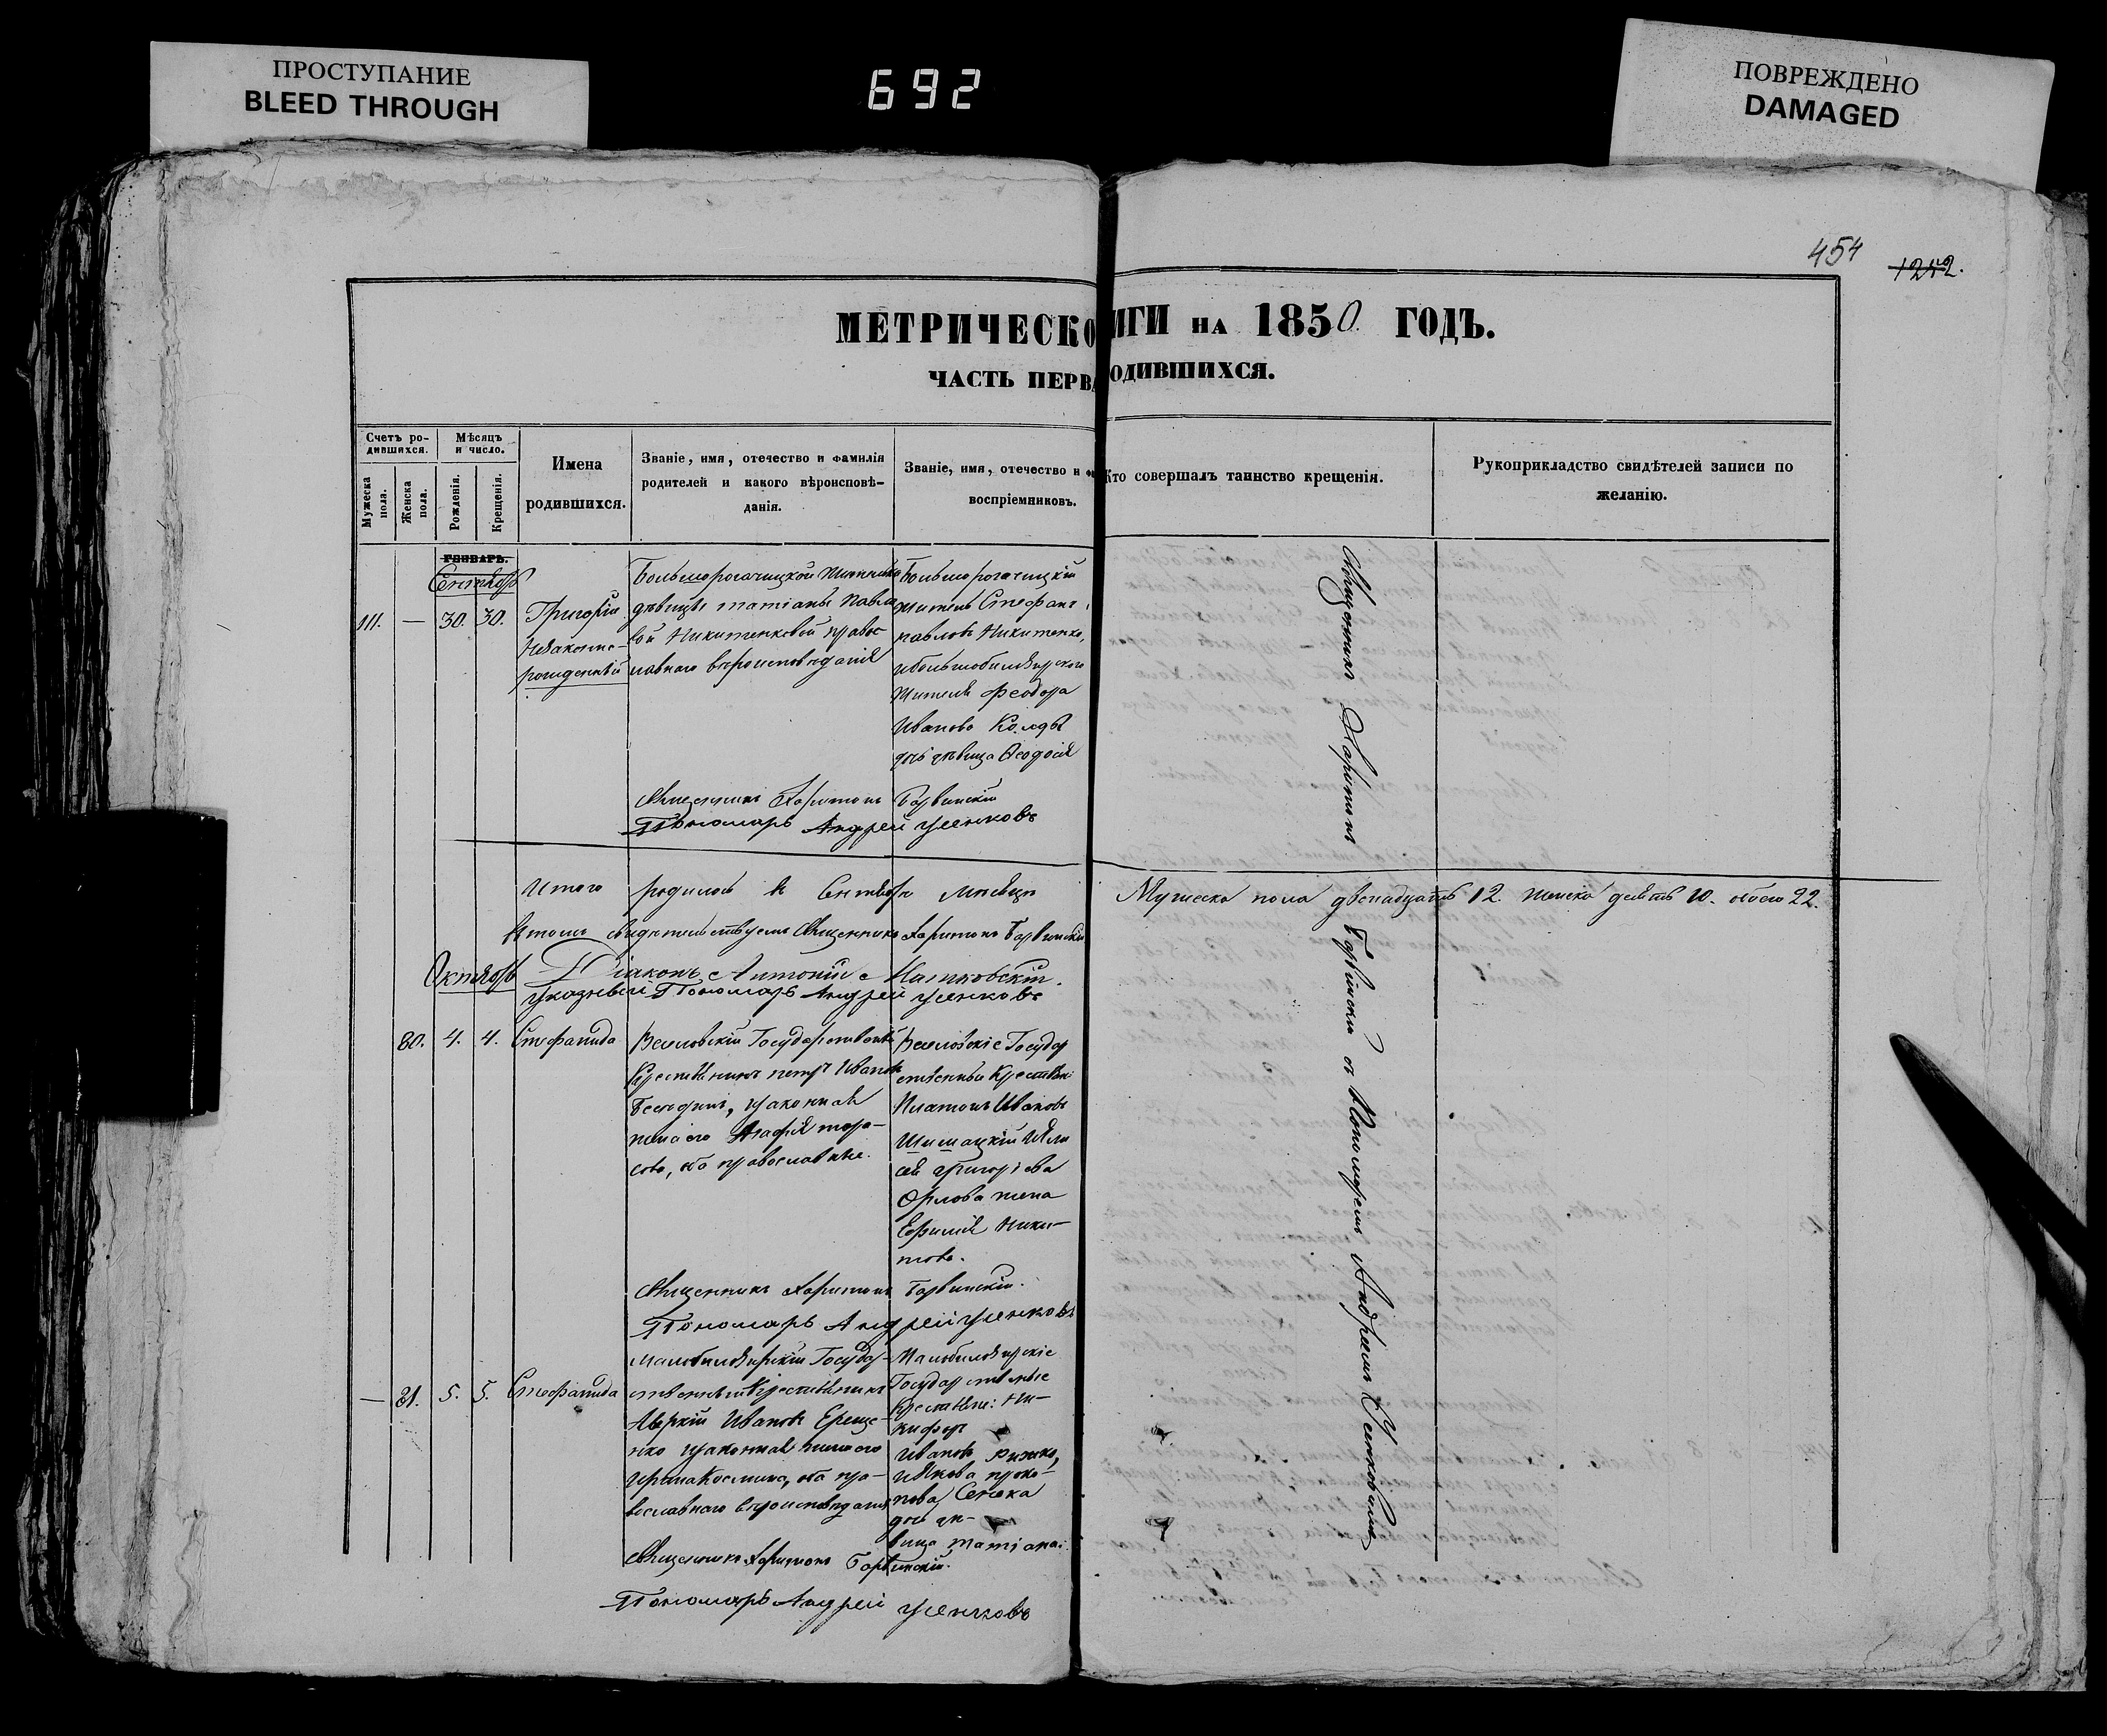 ПРОСТУПАНИЕ
BLEED THROUGH
692
ПОВРЕЖДЕНО
DAMAGED
454
1252.
МЕТРИЧЕСКО ИГИ НА 1850. ГОДЪ.
ЧАСТЬ ПЕРВА ОДИВШИХСЯ.
Счетъ ро-
дившихся.
Мужеска
пола.
Женска
пола.
Мѣсяцъ
и число.
Рожденія.
Крещенія.
Имена
родившихся.
Званіе, имя, отечество и фамилія
родителей и какого вѣроисповѣ-
данія.
Званіе, имя, отечество и
воспріемниковъ.
Кто совершалъ таинство крещенія.
Рукоприкладство свидѣтелей записи по
желанію.
ГЕНВАРЬ.
Сентябрь
111. — 30. 30.
Григорій
Незаконно-
рожденный
Большерогачицкой
дѣвицы Татіаны Павло
вой Никитенковой правос
лавнаго вѣроисповѣданія
Большерогачицкій
житель Стефанъ
Павловъ Никитенко,
жителя Феодора
Иванова
дочь дѣвица Феодосія
Священникъ Харитонъ Барвинскій
Пономарь Андрей Усенковъ
Итого родилось в Сентябрѣ мѣсяцѣ Мужеска пола двенадцать 12. женска десять 10. обоего 22.
В томъ свидѣтельствуемъ Священникъ Харитонъ Барвинскій
Діаконъ Антоній
Октябрь
указный Пономарь Андрей Усенковъ
80. 4. 4. Стефанида
Веселовскій Государственный
Крестьянинъ Петръ Ивановъ
законная
жена его Агафія Тара-
сова, оба православные.
Веселовскіе Государ
ственные Крестьяне:
Платонъ Ивановъ
Григорьева
Орлова жена
Евфимія Ники-
това.
Священникъ Харитонъ Барвинскій.
Пономарь Андрей Усенковъ
— 81. 5. 5. Стефанида
Малобилозирскій Государ-
ственный Крестьянинъ
Аверкій Ивановъ Ереще-
нко законная жена его
Ирина Космина, оба пра-
вославнаго вѣроисповѣданія
Малобилозирскіе
Государственные
Крестьяне: Ни-
кифоръ
Ивановъ
Иякова Проко-
пова Сенека
дочь дѣ-
вица Татіана.
Священникъ Харитонъ Барвинскій.
Пономарь Андрей Усенковъ
Священникъ Харитонъ Барвинскій съ Пономаремъ Андреемъ Усенковымъ